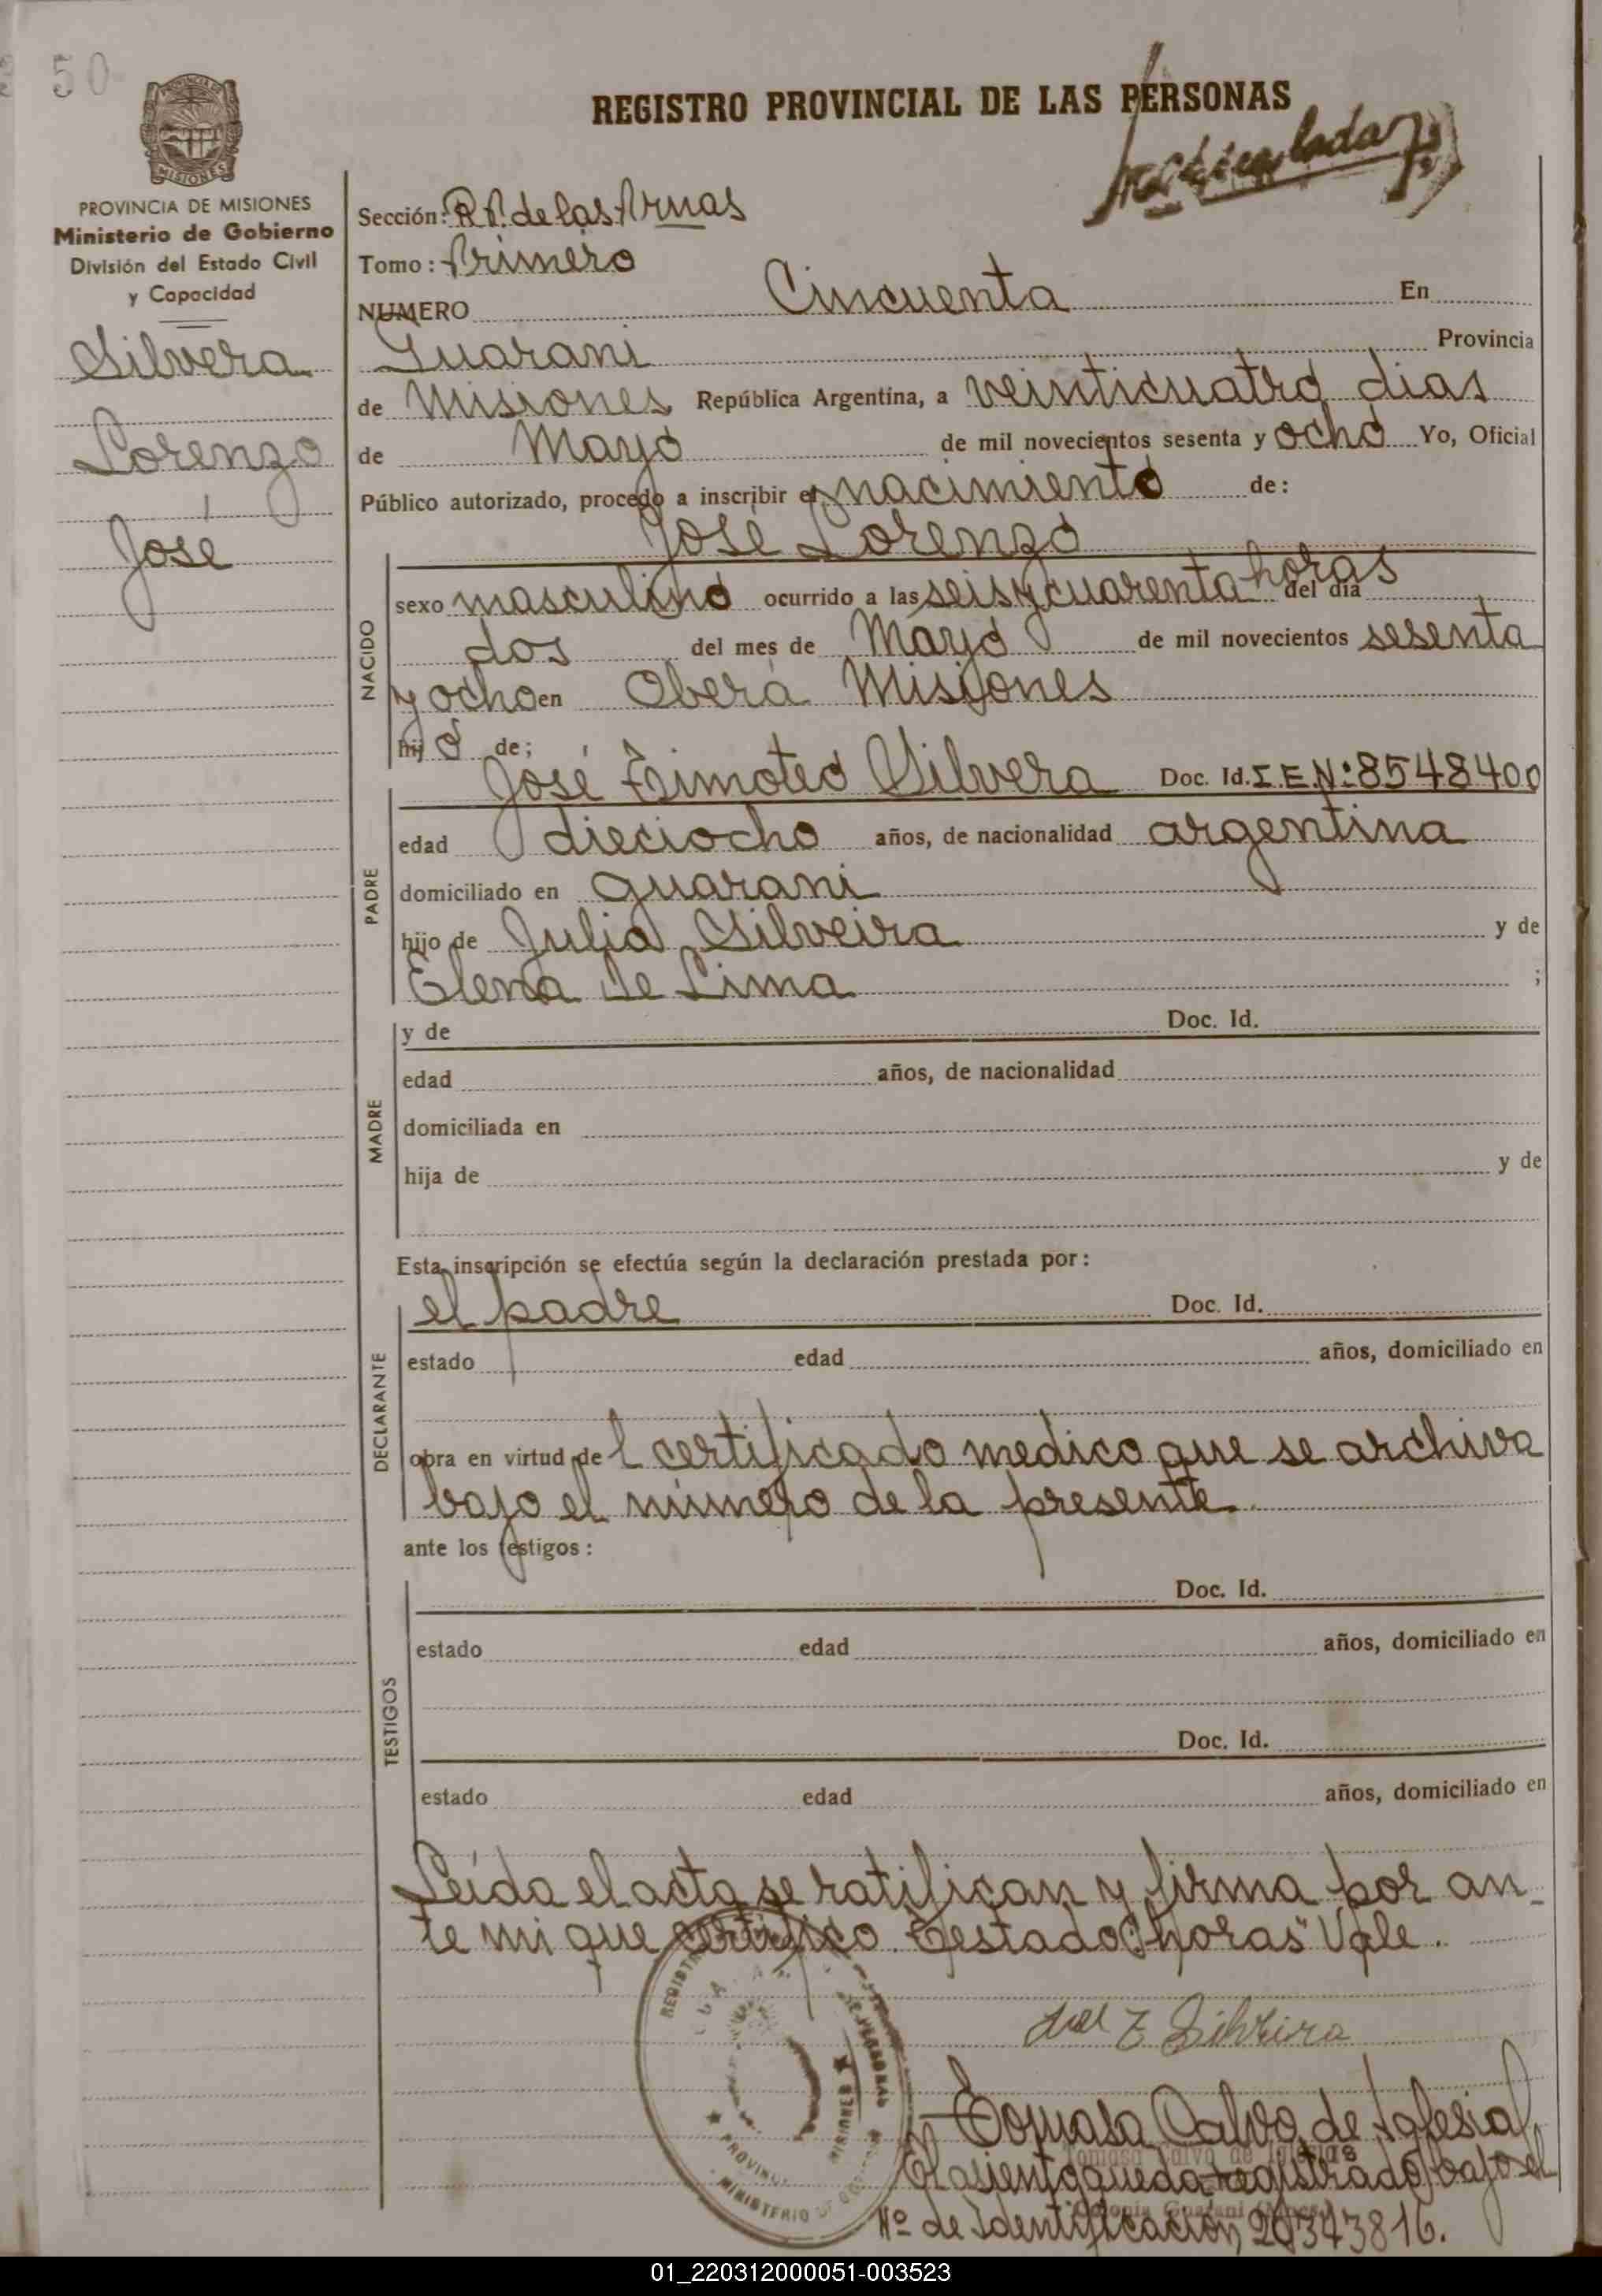 50
REGISTRO PROVINCIAL DE LAS PERSONAS
MISIONES
PROVINCIA DE MISIONES
Ministerio de Gobierno
División del Estado Civil
y Capacidad
Silvera
Lorenzo
José
Sección: R.P. de las Prnas
Tomo: Primero
NUMERO Cincuenta En
Guarani Provincia
de Misiones República Argentina, a veinticuatro dias
de Mayo de mil novecientos sesenta y ocho Yo, Oficial
Público autorizado, procedo a inscribir el nacimiento de:
José Lorenzo
NACIDO
sexo masculino ocurrido a las seis y cuarenta horas del día
dos del mes de Mayo de mil novecientos sesenta
y ocho en Obera Misiones
hijo de;
PADRE
José Timoteo Silvera Doc. Id. I.E.Nº 8548400
edad dieciocho años, de nacionalidad argentina
domiciliado en guarani
hijo de Julia Silveira y de
Elena de Lima ;
MADRE
y de Doc. Id.
edad años, de nacionalidad
domiciliada en
hija de y de
Esta inscripción se efectúa según la declaración prestada por:
DECLARANTE
el padre Doc. Id.
estado edad años, domiciliado en
obra en virtud de l certificado medico que se archiva
bajo el número de la presente.
ante los testigos:
TESTIGOS
Doc. Id.
estado edad años, domiciliado en
Doc. Id.
estado edad años, domiciliado en
Leída el acta se ratifican y firma por an-
te mi que certifico. Testado: "horas" Vale.
José T Silveira
Tomasa Calvo de Iglesias
Tomasa Calvo de Iglesias
El asiento queda registrado bajo el
Colonia Guarani (Mnes.)
Nº de Identificación 20343816.
PROVINCIA
MINISTERIO DE GOBIERNO
01_220312000051-003523